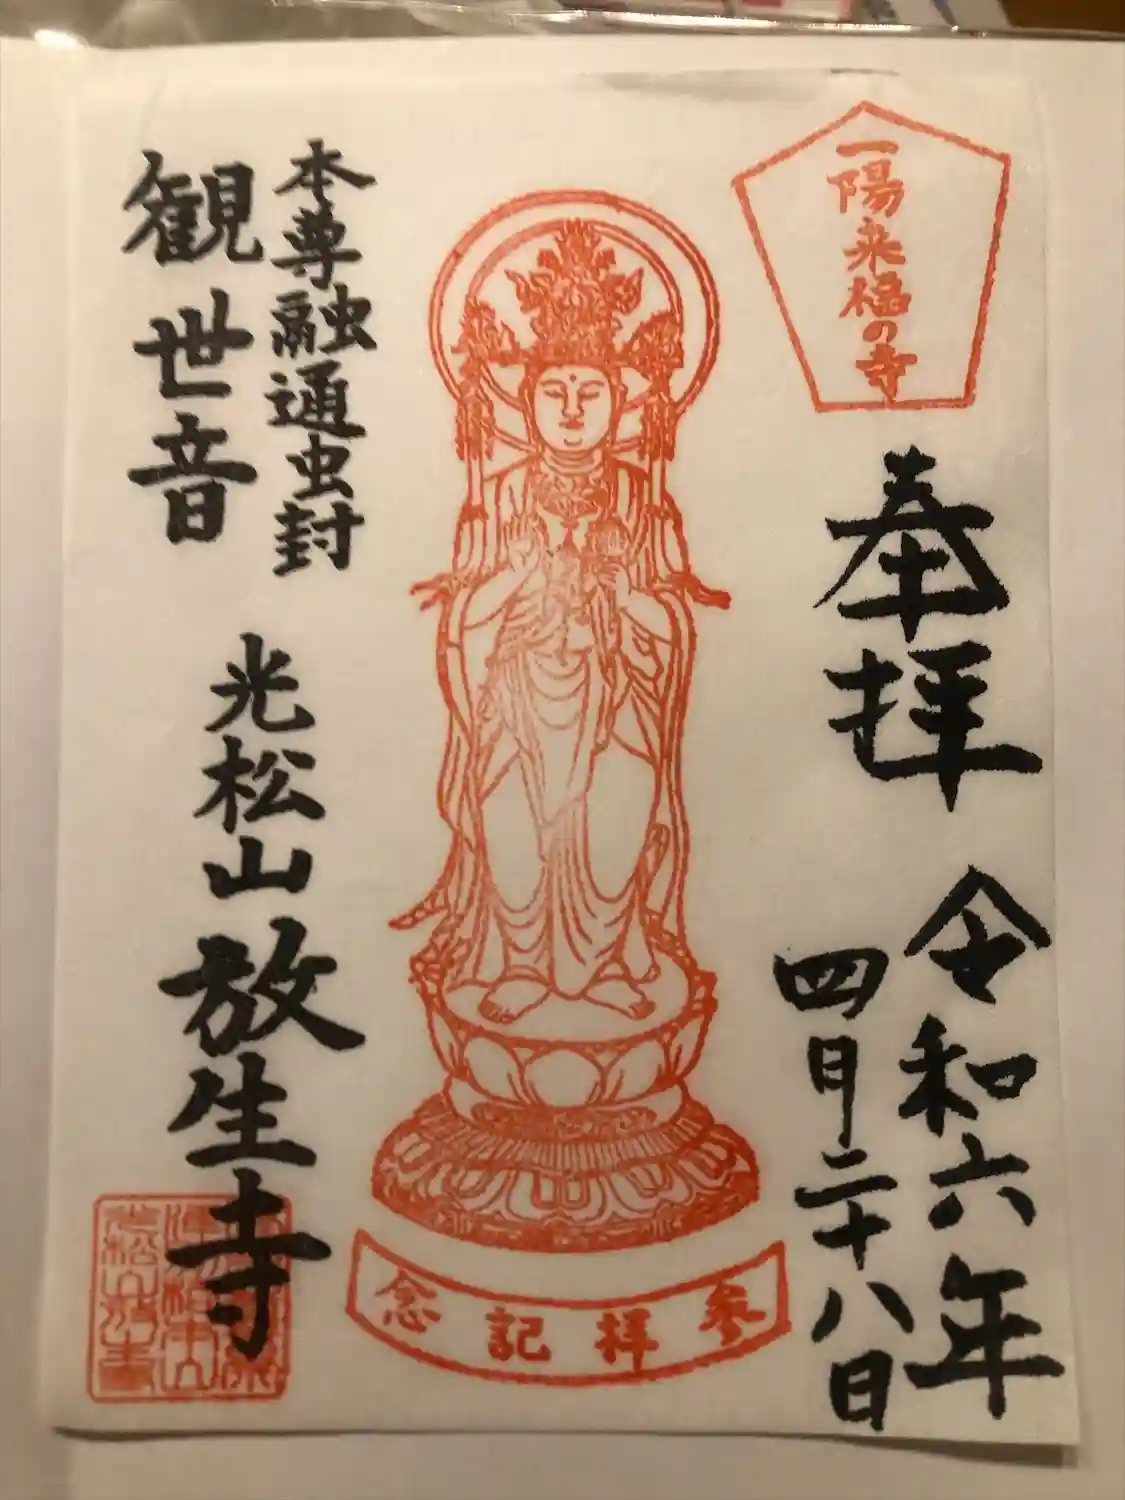 一陽来福の寺
奉拝
令和六年
四月二十八日
参拝記念
本尊融通虫封
観世音
光松山放生寺